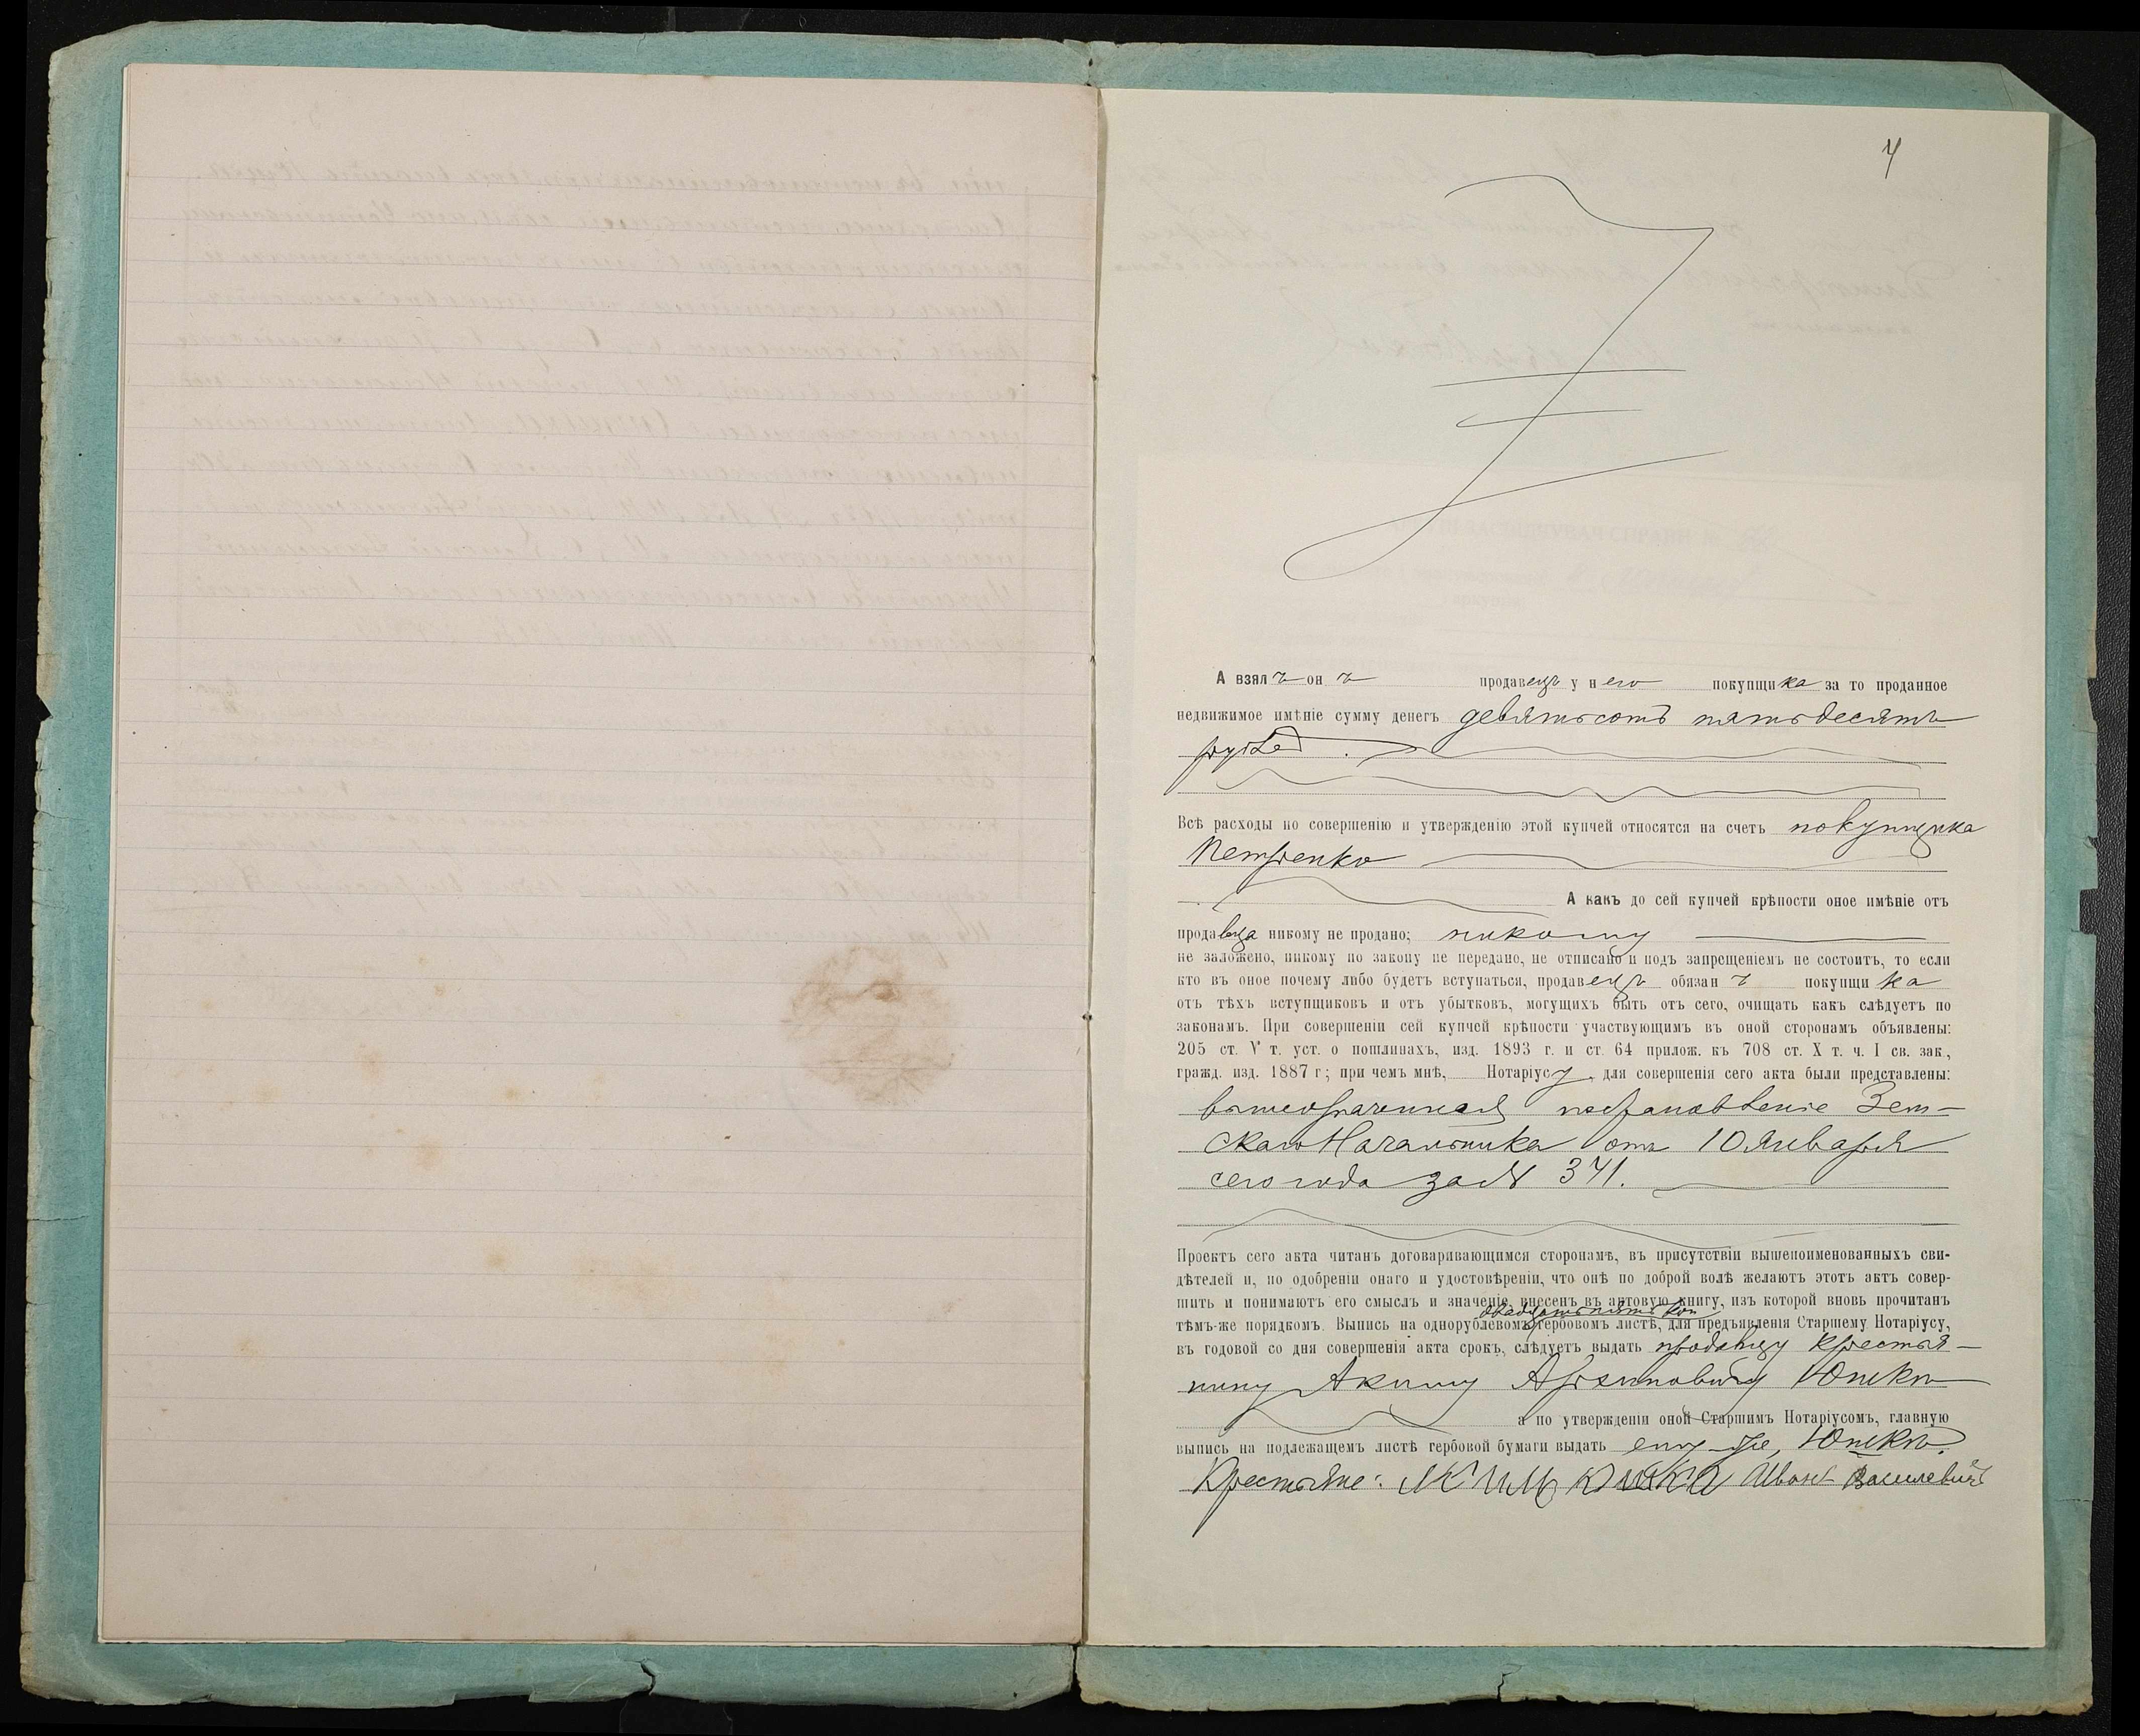 4
А взялъ онъ продавецъ у него покупщика за то проданное
недвижимое имѣніе сумму денегъ девятьсотъ пятьдесятъ
рублей.
Всѣ расходы по совершенію и утвержденію этой купчей относятся на счетъ покупщика
Петренко
А какъ до сей купчей крѣпости оное имѣніе отъ
продавца никому не продано; никому
не заложено, никому по закону не передано, не отписано и подъ запрещеніемъ не состоитъ, то если
кто въ оное почему либо будетъ вступаться, продавецъ обязанъ покупщика
отъ тѣхъ вступщиковъ и отъ убытковъ, могущихъ быть отъ сего, очищать какъ слѣдуетъ по
законамъ. При совершеніи сей купчей крѣпости участвующимъ въ оной сторонамъ объявлены:
205 ст. V т. уст. о пошлинахъ, изд. 1893 г. и ст. 64 прилож. къ 708 ст. X т. ч. I св. зак.,
гражд. изд. 1887 г; при чемъ мнѣ, Нотаріусу, для совершенія сего акта были представлены:
постановленіе Зем-
скаго Начальника отъ 10 января
сего года за № 341.
Проектъ сего акта читанъ договаривающимся сторонамъ, въ присутствіи вышепоименованныхъ сви-
дѣтелей и, по одобреніи онаго и удостовѣреніи, что онѣ по доброй волѣ желаютъ этотъ актъ совер-
шить и понимаютъ его смыслъ и значеніе, внесенъ въ актовую книгу, изъ которой вновь прочитанъ
двадцать пять коп
тѣмъ-же порядкомъ. Выпись на однорублевомъ гербовомъ листѣ, для предъявленія Старшему Нотаріусу,
въ годовой со дня совершенія акта срокъ, слѣдуетъ выдать продавцу крестья-
нину Акиму Архиповичу Юшкѣ
а по утвержденіи оной Старшимъ Нотаріусомъ, главную
выпись на подлежащемъ листѣ гербовой бумаги выдать ему-же, Юшкѣ.
Крестьяне: Якимъ Юшка Иванъ Василевичъ